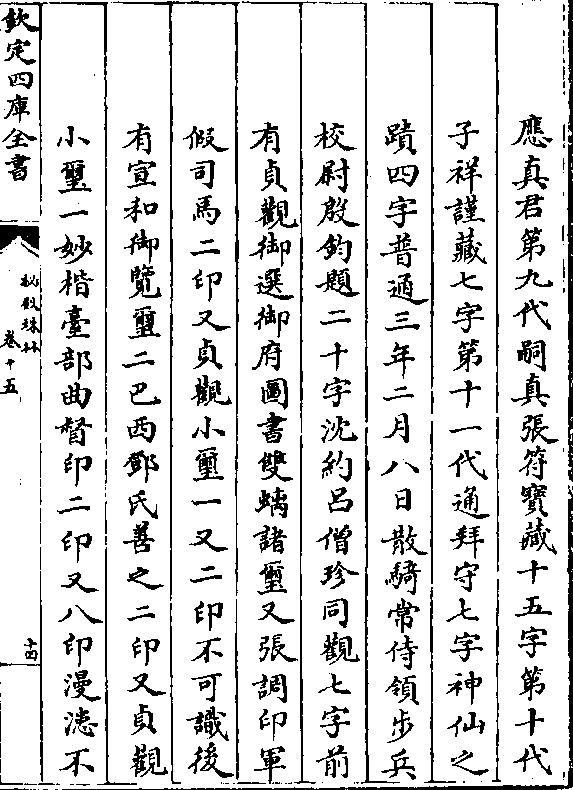 應真君第九代嗣真張符寶藏十五字第十代
子祥謹藏七字第十一代通拜守七字神仙之
蹟四字普通三年二月八日散騎常侍領步兵
校尉殷鈞題二十字沈約呂僧珍同觀七字前
有貞觀御選御府圖書雙螭諸璽又張調印軍
假司馬二印又貞觀小璽一又二印不可識後
有宣和御覽璽二巴西鄧氏善之二印又貞觀
小璽一妙楷臺部曲督印二印又八印漫漶不
欽定四庫全書
秘殿珠林
卷十五
十四